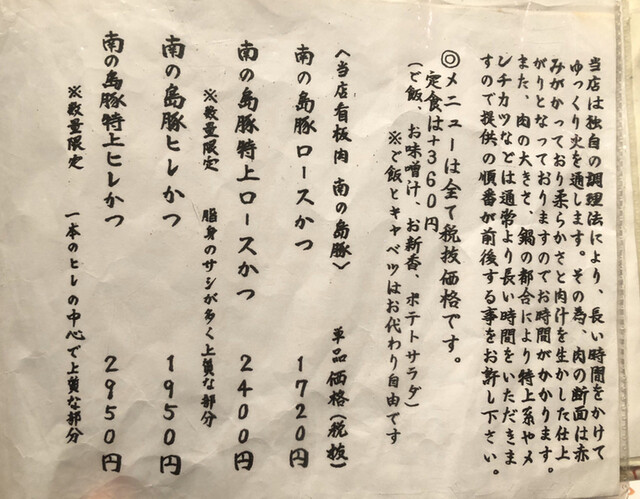 当店は独自の調理法により、長い時間をかけて
ゆっくり火を通します。その為、肉の断面は赤
みがかっており柔らかさと肉汁を生かした仕上
がりとなっておりますのでお時間がかかります。
また、肉の大きさ、鍋の都合により特上系やメ
ンチカツなどは通常より長い時間をいただきま
すので提供の順番が前後する事をお許し下さい。
◎メニューは全て税抜価格です。
定食は+360円
(ご飯、お味噌汁、お新香、ポテトサラダ)
※ご飯とキャベツはお代わり自由です
〈当店看板肉 南の島豚〉 単品価格(税抜)
南の島豚ロースかつ 1720円
南の島豚特上ロースかつ 2400円
※数量限定 脂身のサシが多く上質な部分
南の島豚ヒレかつ 1950円
南の島豚特上ヒレかつ 2950円
※数量限定 一本のヒレの中心で上質な部分